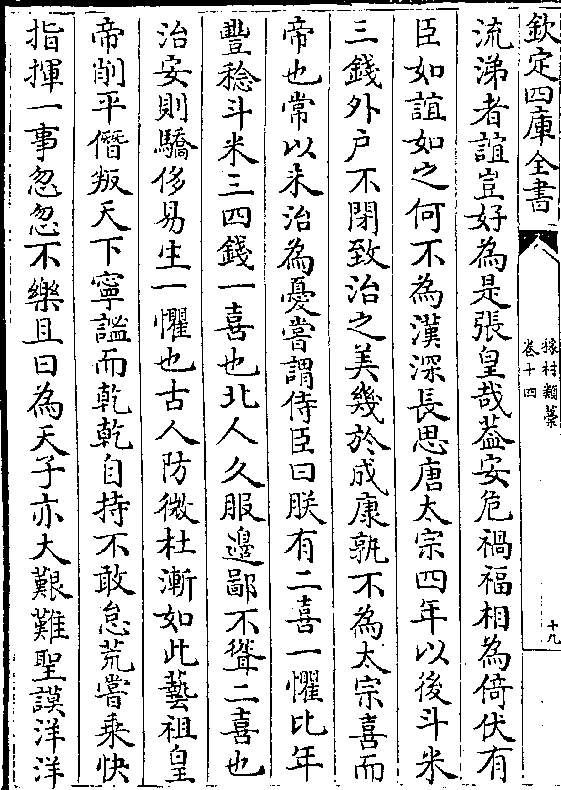 欽定四庫全書
椽村類藁
卷十四
十九
流涕者誼豈好為是張皇哉葢安危禍福相為倚伏有
臣如誼如之何不為漢深長思唐太宗四年以後斗米
三錢外户不閉致治之美幾於成康孰不為太宗喜而
帝也常以未治為憂嘗謂侍臣曰朕有二喜一懼比年
豐稔斗米三四錢一喜也北人久服邉鄙不聳二喜也
治安則驕侈易生一懼也古人防微杜漸如此藝祖皇
帝削平僭叛天下寧謐而乾乾自持不敢怠荒嘗乗快
指揮一事忽忽不樂且曰為天子亦大艱難聖謨洋洋